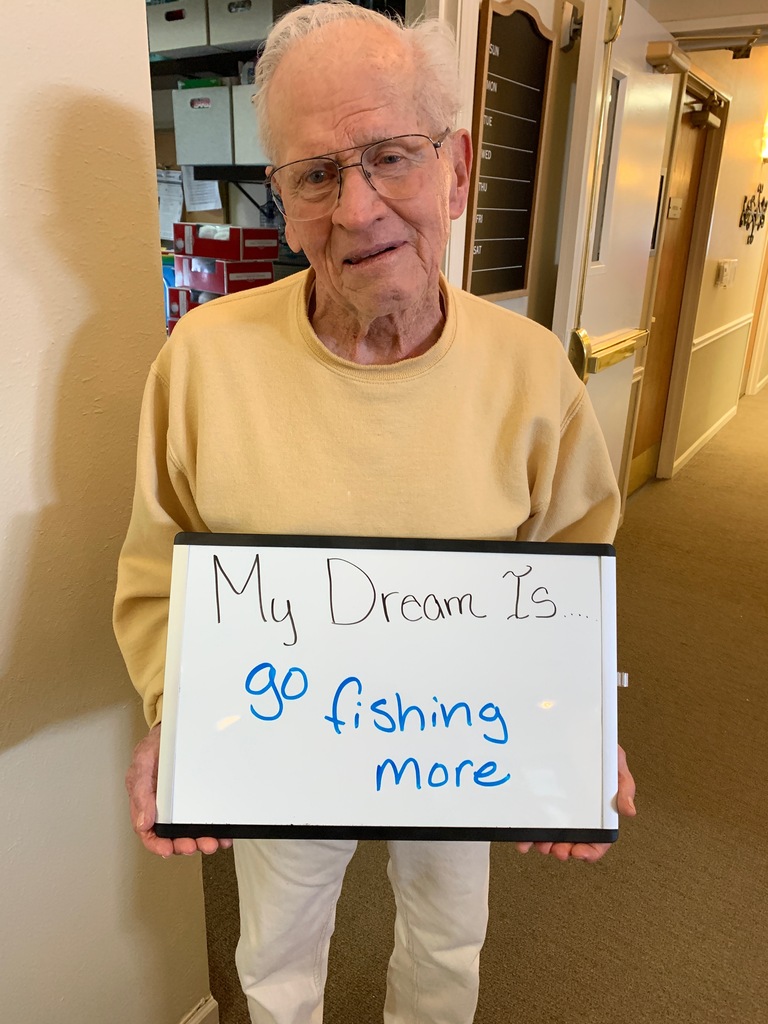 SUN
MON
TUE
WED
THU
FRI
SAT
My Dream Is.....
go fishing
more